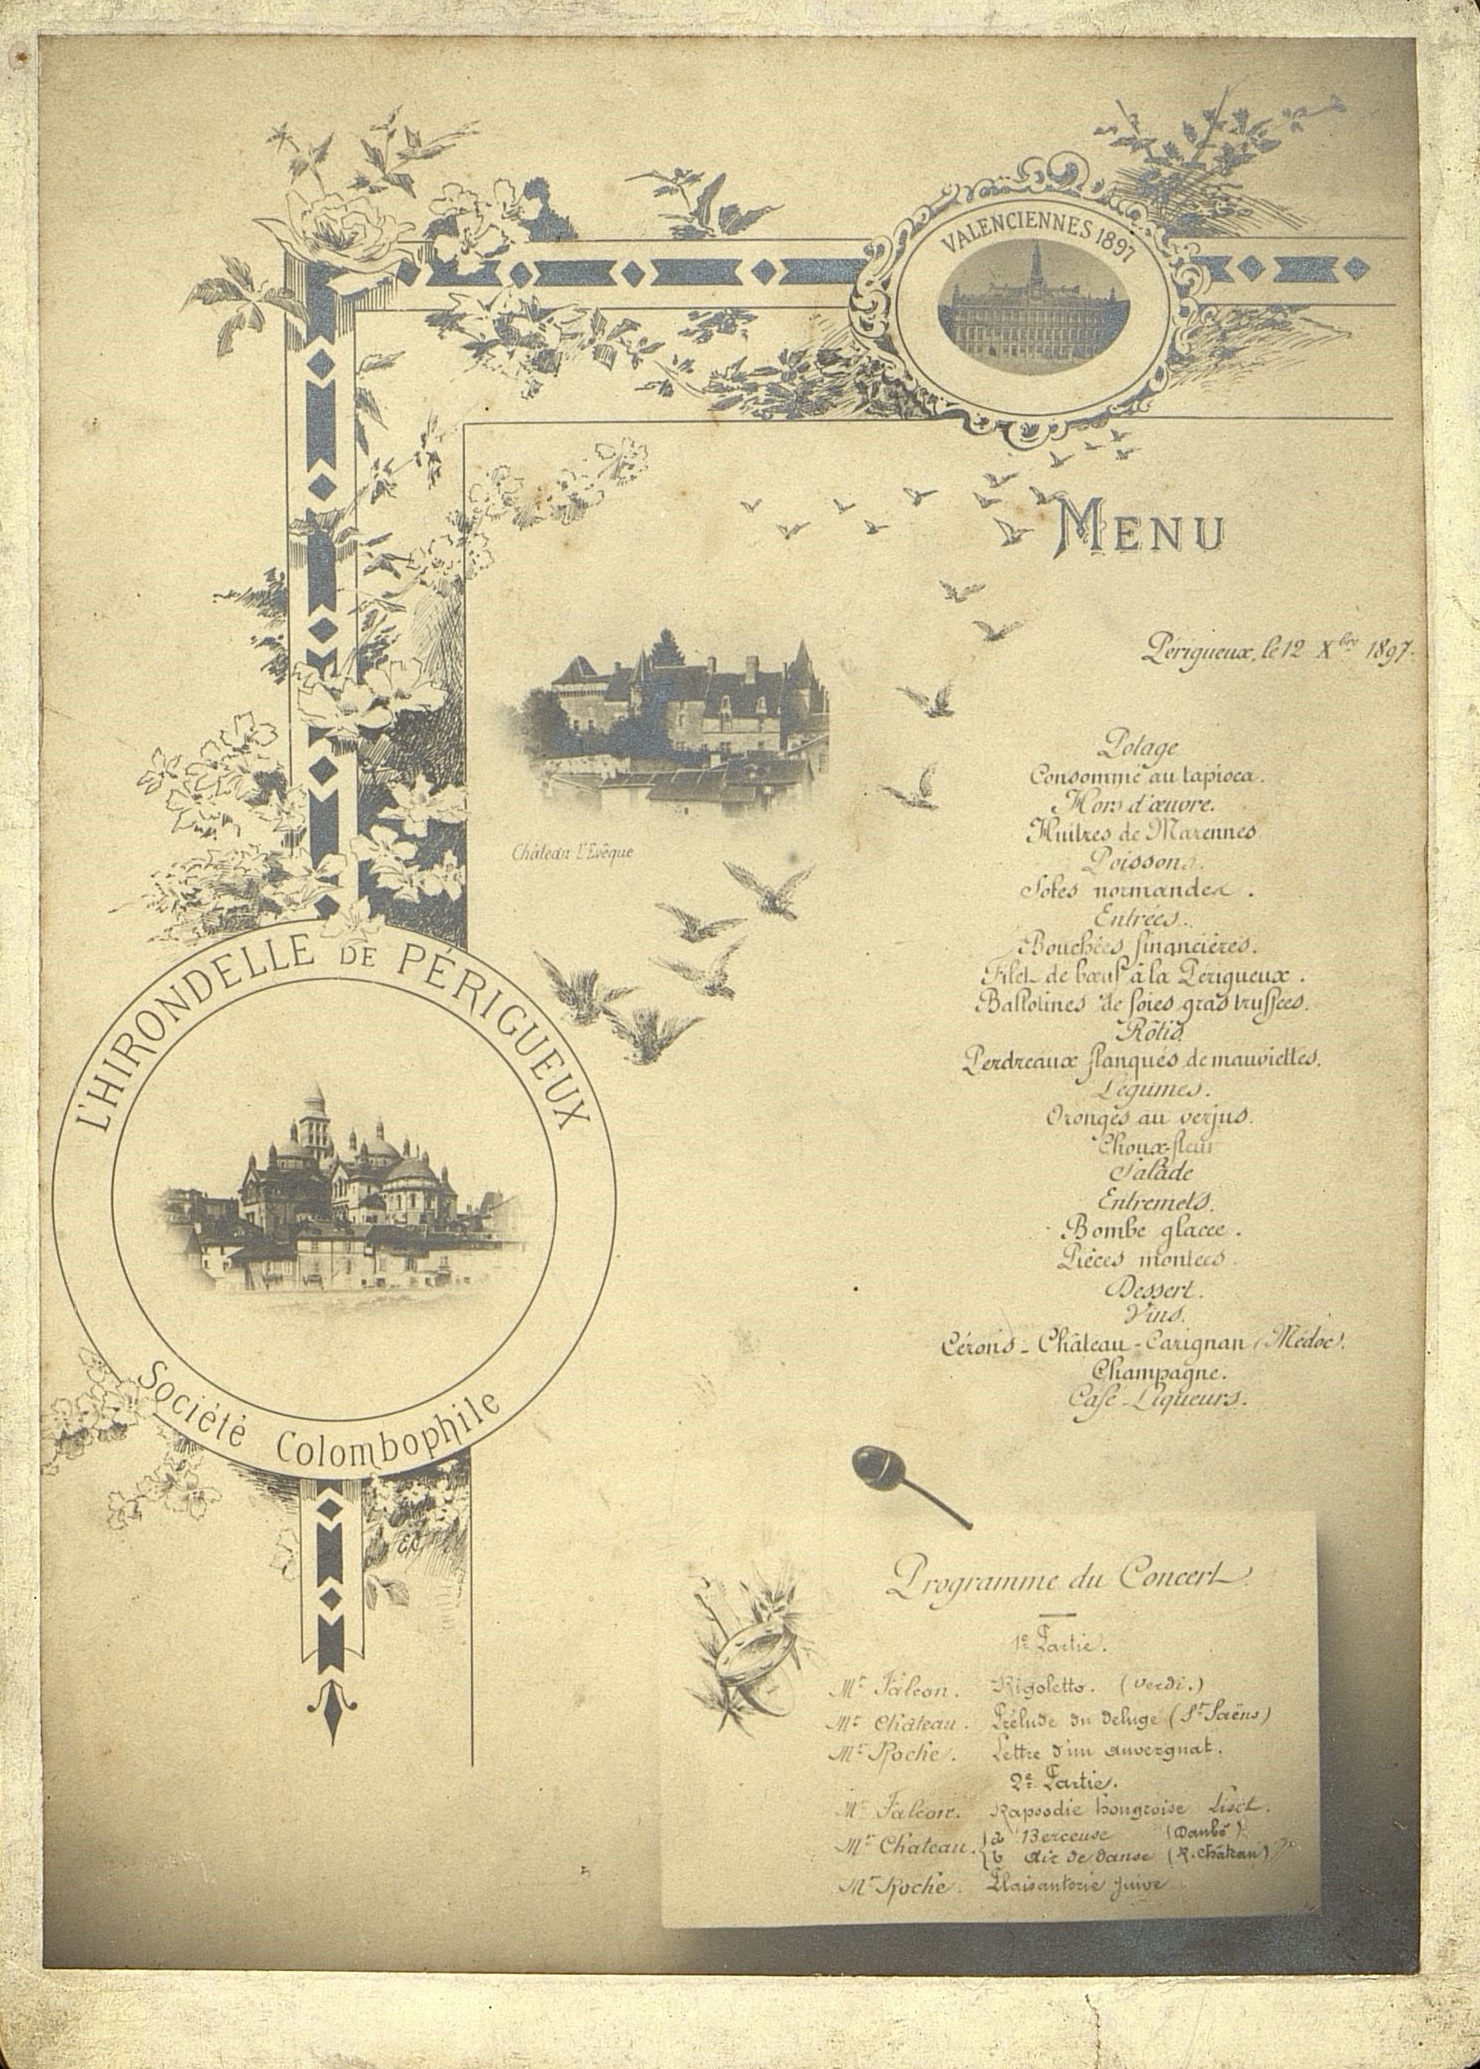 VALENCIENNES 1897
MENU
Périgueux, le 12 Xbre 1897.
Château l'Evêque
Potage
Consommé au tapioca.
Hors d'œuvre.
Huîtres de Marennes
Poissons.
Soles normandes.
Entrées.
Bouchées financières.
Filet de bœuf à la Périgueux.
Ballotines de foies gras truffées.
Rôtis.
Perdreaux flanqués de mauviettes.
Légumes.
Oronges au verjus.
Choux-fleur
Salade
Entremets.
Bombe glacée.
Pièces montées.
Dessert.
Vins.
Cérons - Château-Carignan (Médoc).
Champagne.
Café - Liqueurs.
L'HIRONDELLE DE PÉRIGUEUX
Société Colombophile
Programme du Concert
1e Partie.
Mr Falcon. Rigoletto. (Verdi.)
Mr Château. Prélude du déluge (St Saëns)
Mr Roche. Lettre d'un auvergnat.
2e Partie.
Mr Falcon. Rapsodie hongroise Liszt.
Mr Chateau. a Berceuse (Danbé)
b Air de danse (R. Château)
Mr Roche. Plaisanterie juive